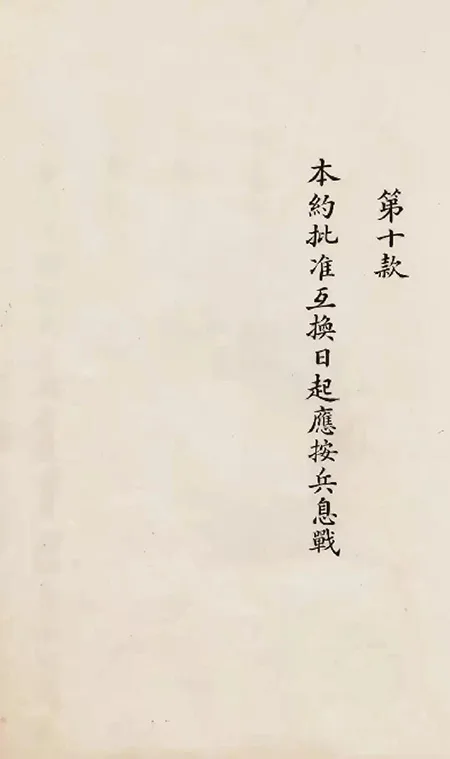 第十款
本約批准互換日起應按兵息戰